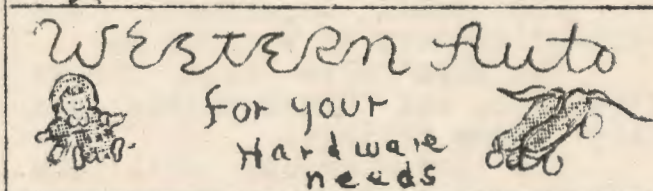 WESTERN Auto
for your
Hardware
needs